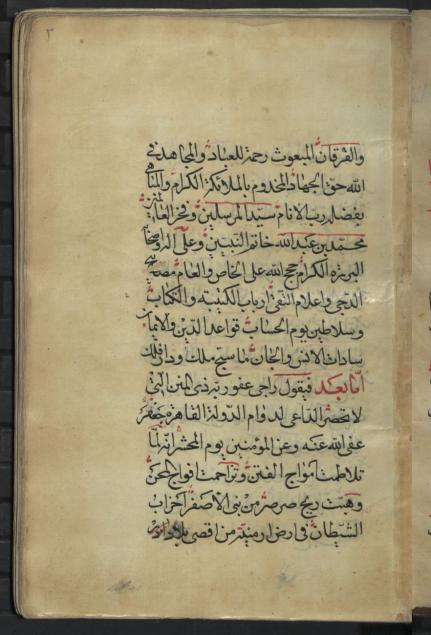 ٣
والفرقان المبعوث رحمة للعباد والمجاهد في
الله حق الجهاد المخدوم بالملائكة الكرام والمباهي
بفضله رب الانام سيد المرسلين وفخر العالمين
محمد بن عبد الله خاتم النبيين وعلى اله واصحابه
البررة الكرام حجج الله على الخاص والعام مصابيح
الدجى واعلام التقى ارباب الكتيبة والكتاب
وسلاطين يوم الحساب قواعد الدين والايمان
سادات الانس والجان ما سبح ملك ودار فلك
اما بعد فيقول راجي عفو ربه ذي المنن التي
لا تحصر الداعي لدوام الدولة القاهرة جعفر
عفى الله عنه وعن المؤمنين يوم المحشر انه لما
تلاطمت امواج الفتن وتزاحمت افواج المحن
وهبت ريح صرصر من بني الاصفر احزاب
الشيطان في ارض ارمنية من اقصى بلاد